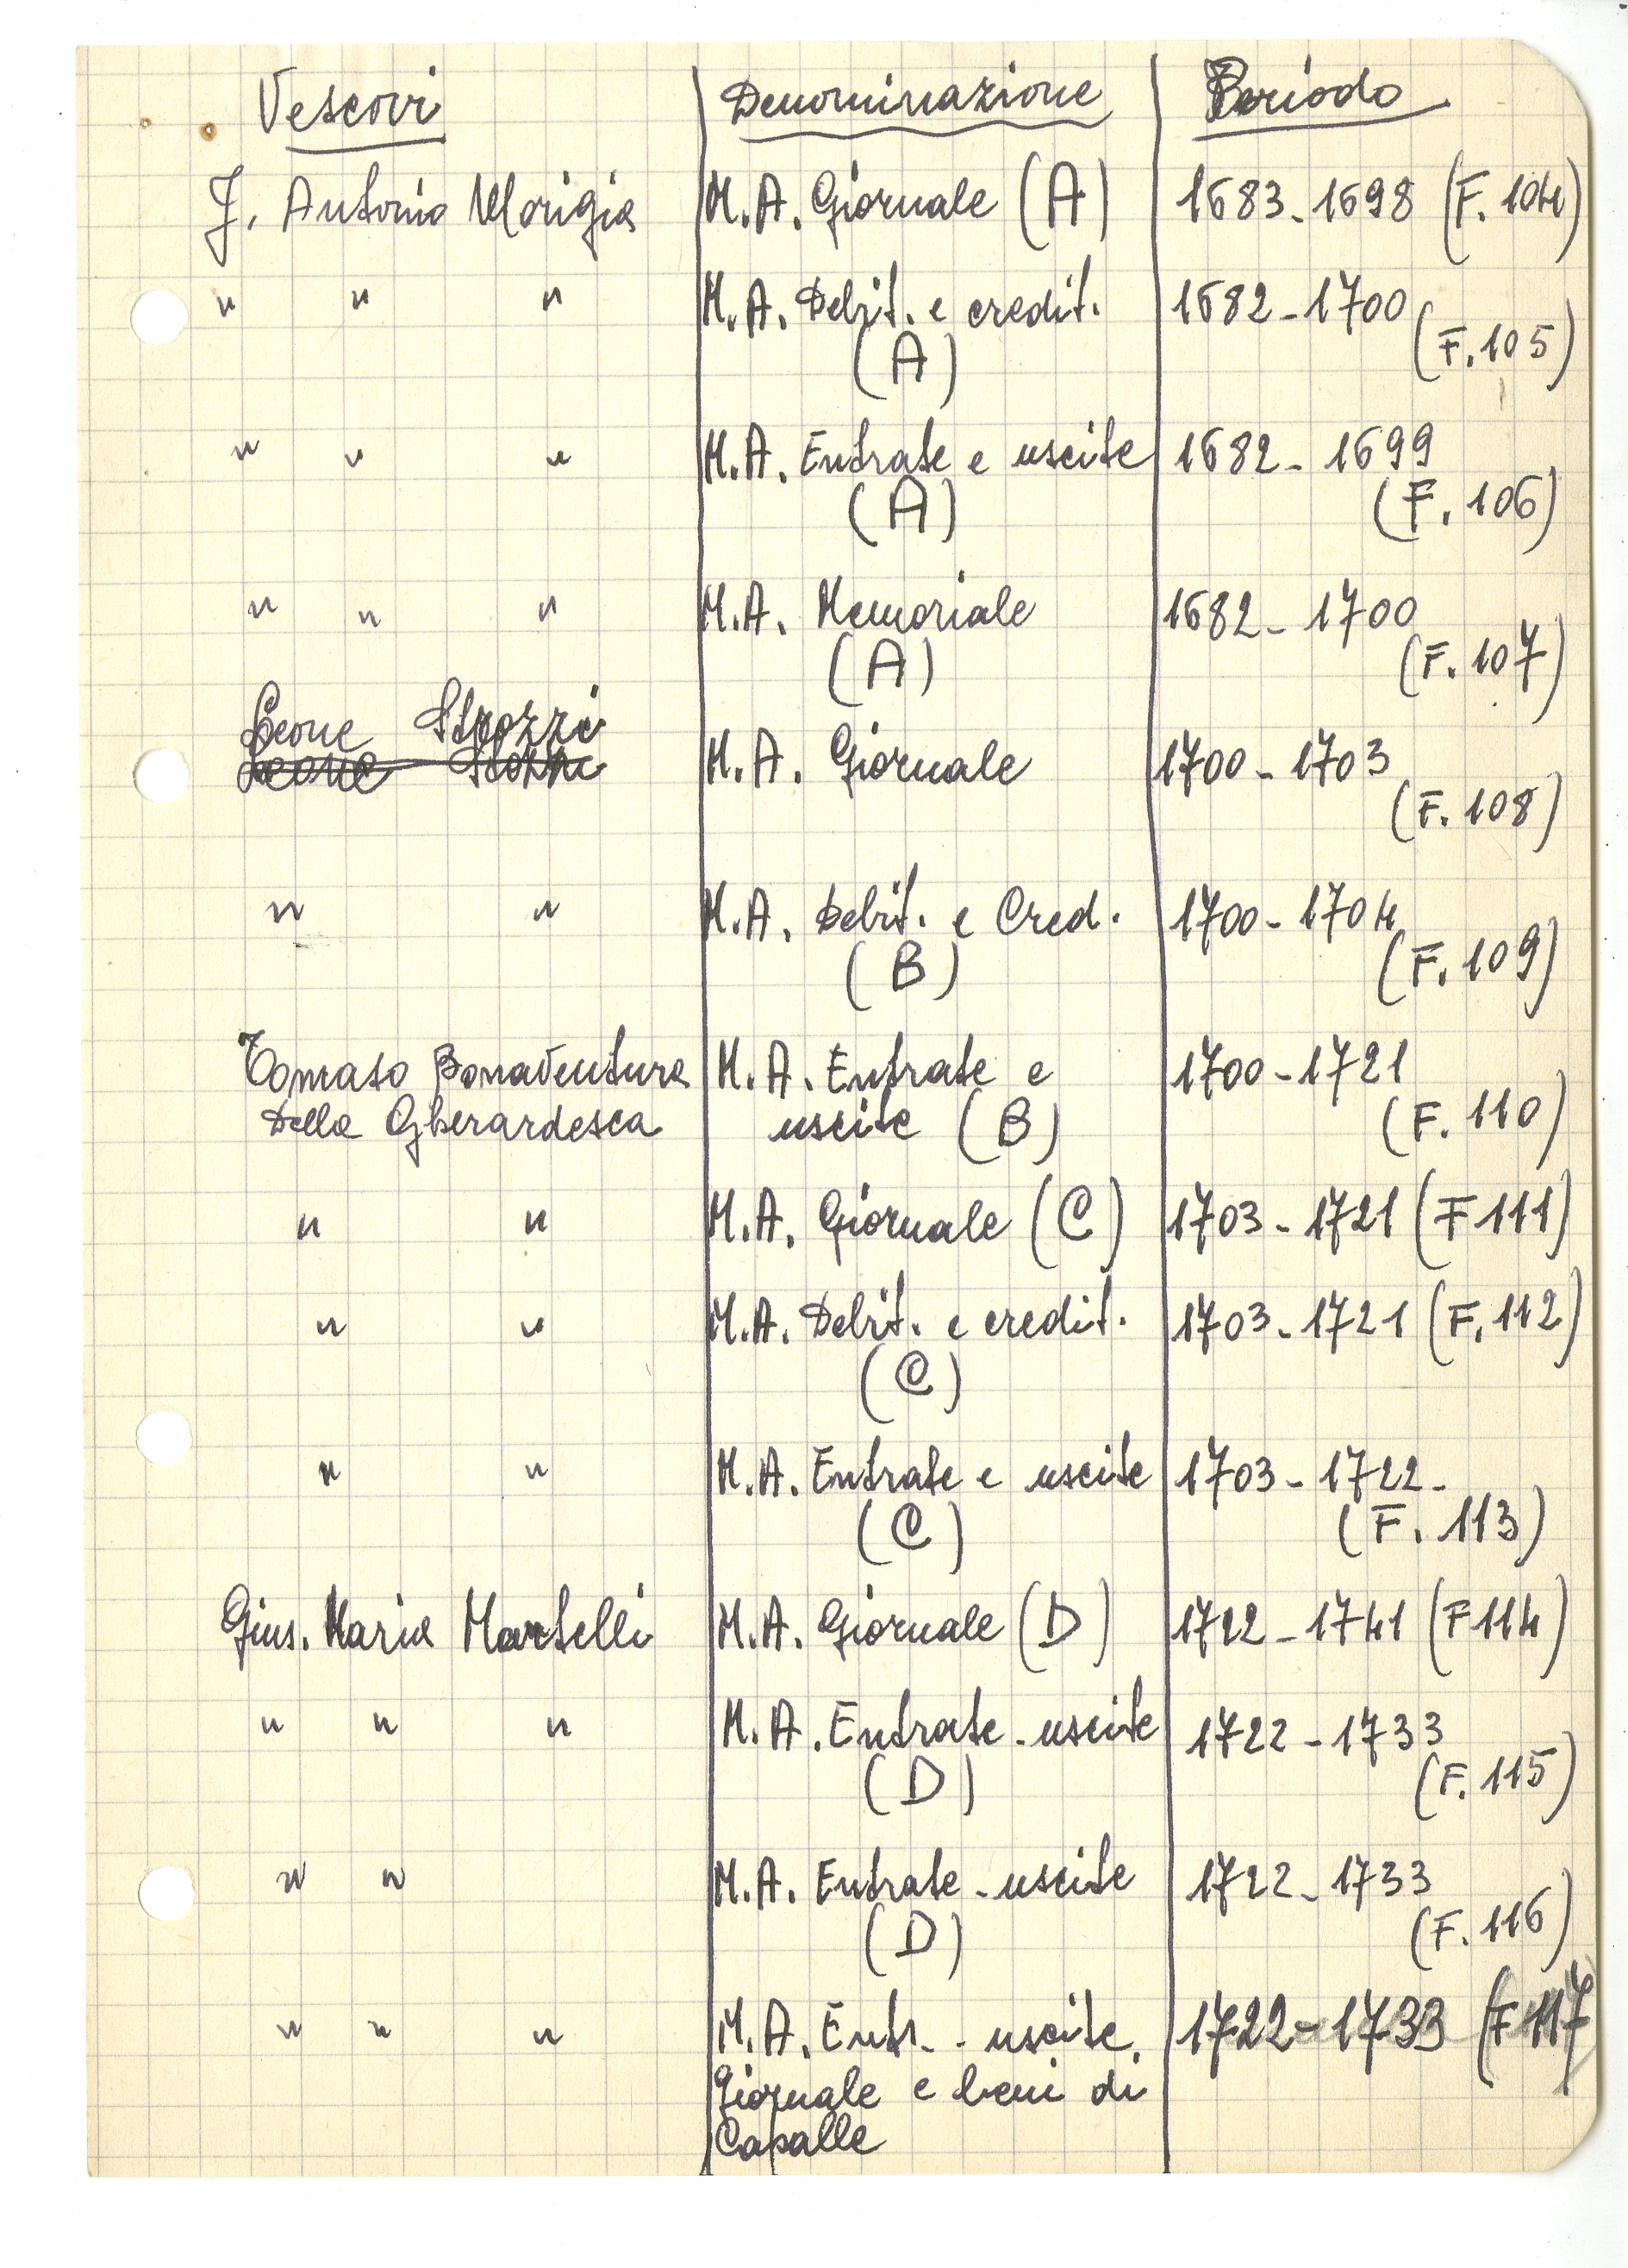 Vescovi Denominazione Periodo
J. Antonio Morigia M.A. Giornale (A) 1683-1698 (F. 104)
" " " M.A. Debit. e credit. 1682-1700
(A) (F. 105)
" " " M.A. Entrate e uscite 1682-1699
(A) (F. 106)
" " " M.A. Memoriale 1682-1700
(A) (F. 107)
Leone Strozzi
Leone Strozzi M.A. Giornale 1700-1703
(F. 108)
" " M.A. Debit. e Cred. 1700-1704
(B) (F. 109)
Tomaso Bonaventura M.A. Entrate e 1700-1721
Della Gherardesca uscite (B) (F. 110)
" " M.A. Giornale (C) 1703-1721 (F 111)
" " M.A. Debit. e credit. 1703-1721 (F. 112)
(C)
" " M.A. Entrate e uscite 1703-1722-
(C) (F. 113)
Gius. Maria Martelli M.A. Giornale (D) 1722-1741 (F 114)
" " " M.A. Entrate-uscite 1722-1733
(D) (F. 115)
" " M.A. Entrate-uscite 1722-1733
(D) (F. 116)
" " " M.A. Entr.- uscite, 1722-1733 (F 117
Giornale e beni di
Capalle